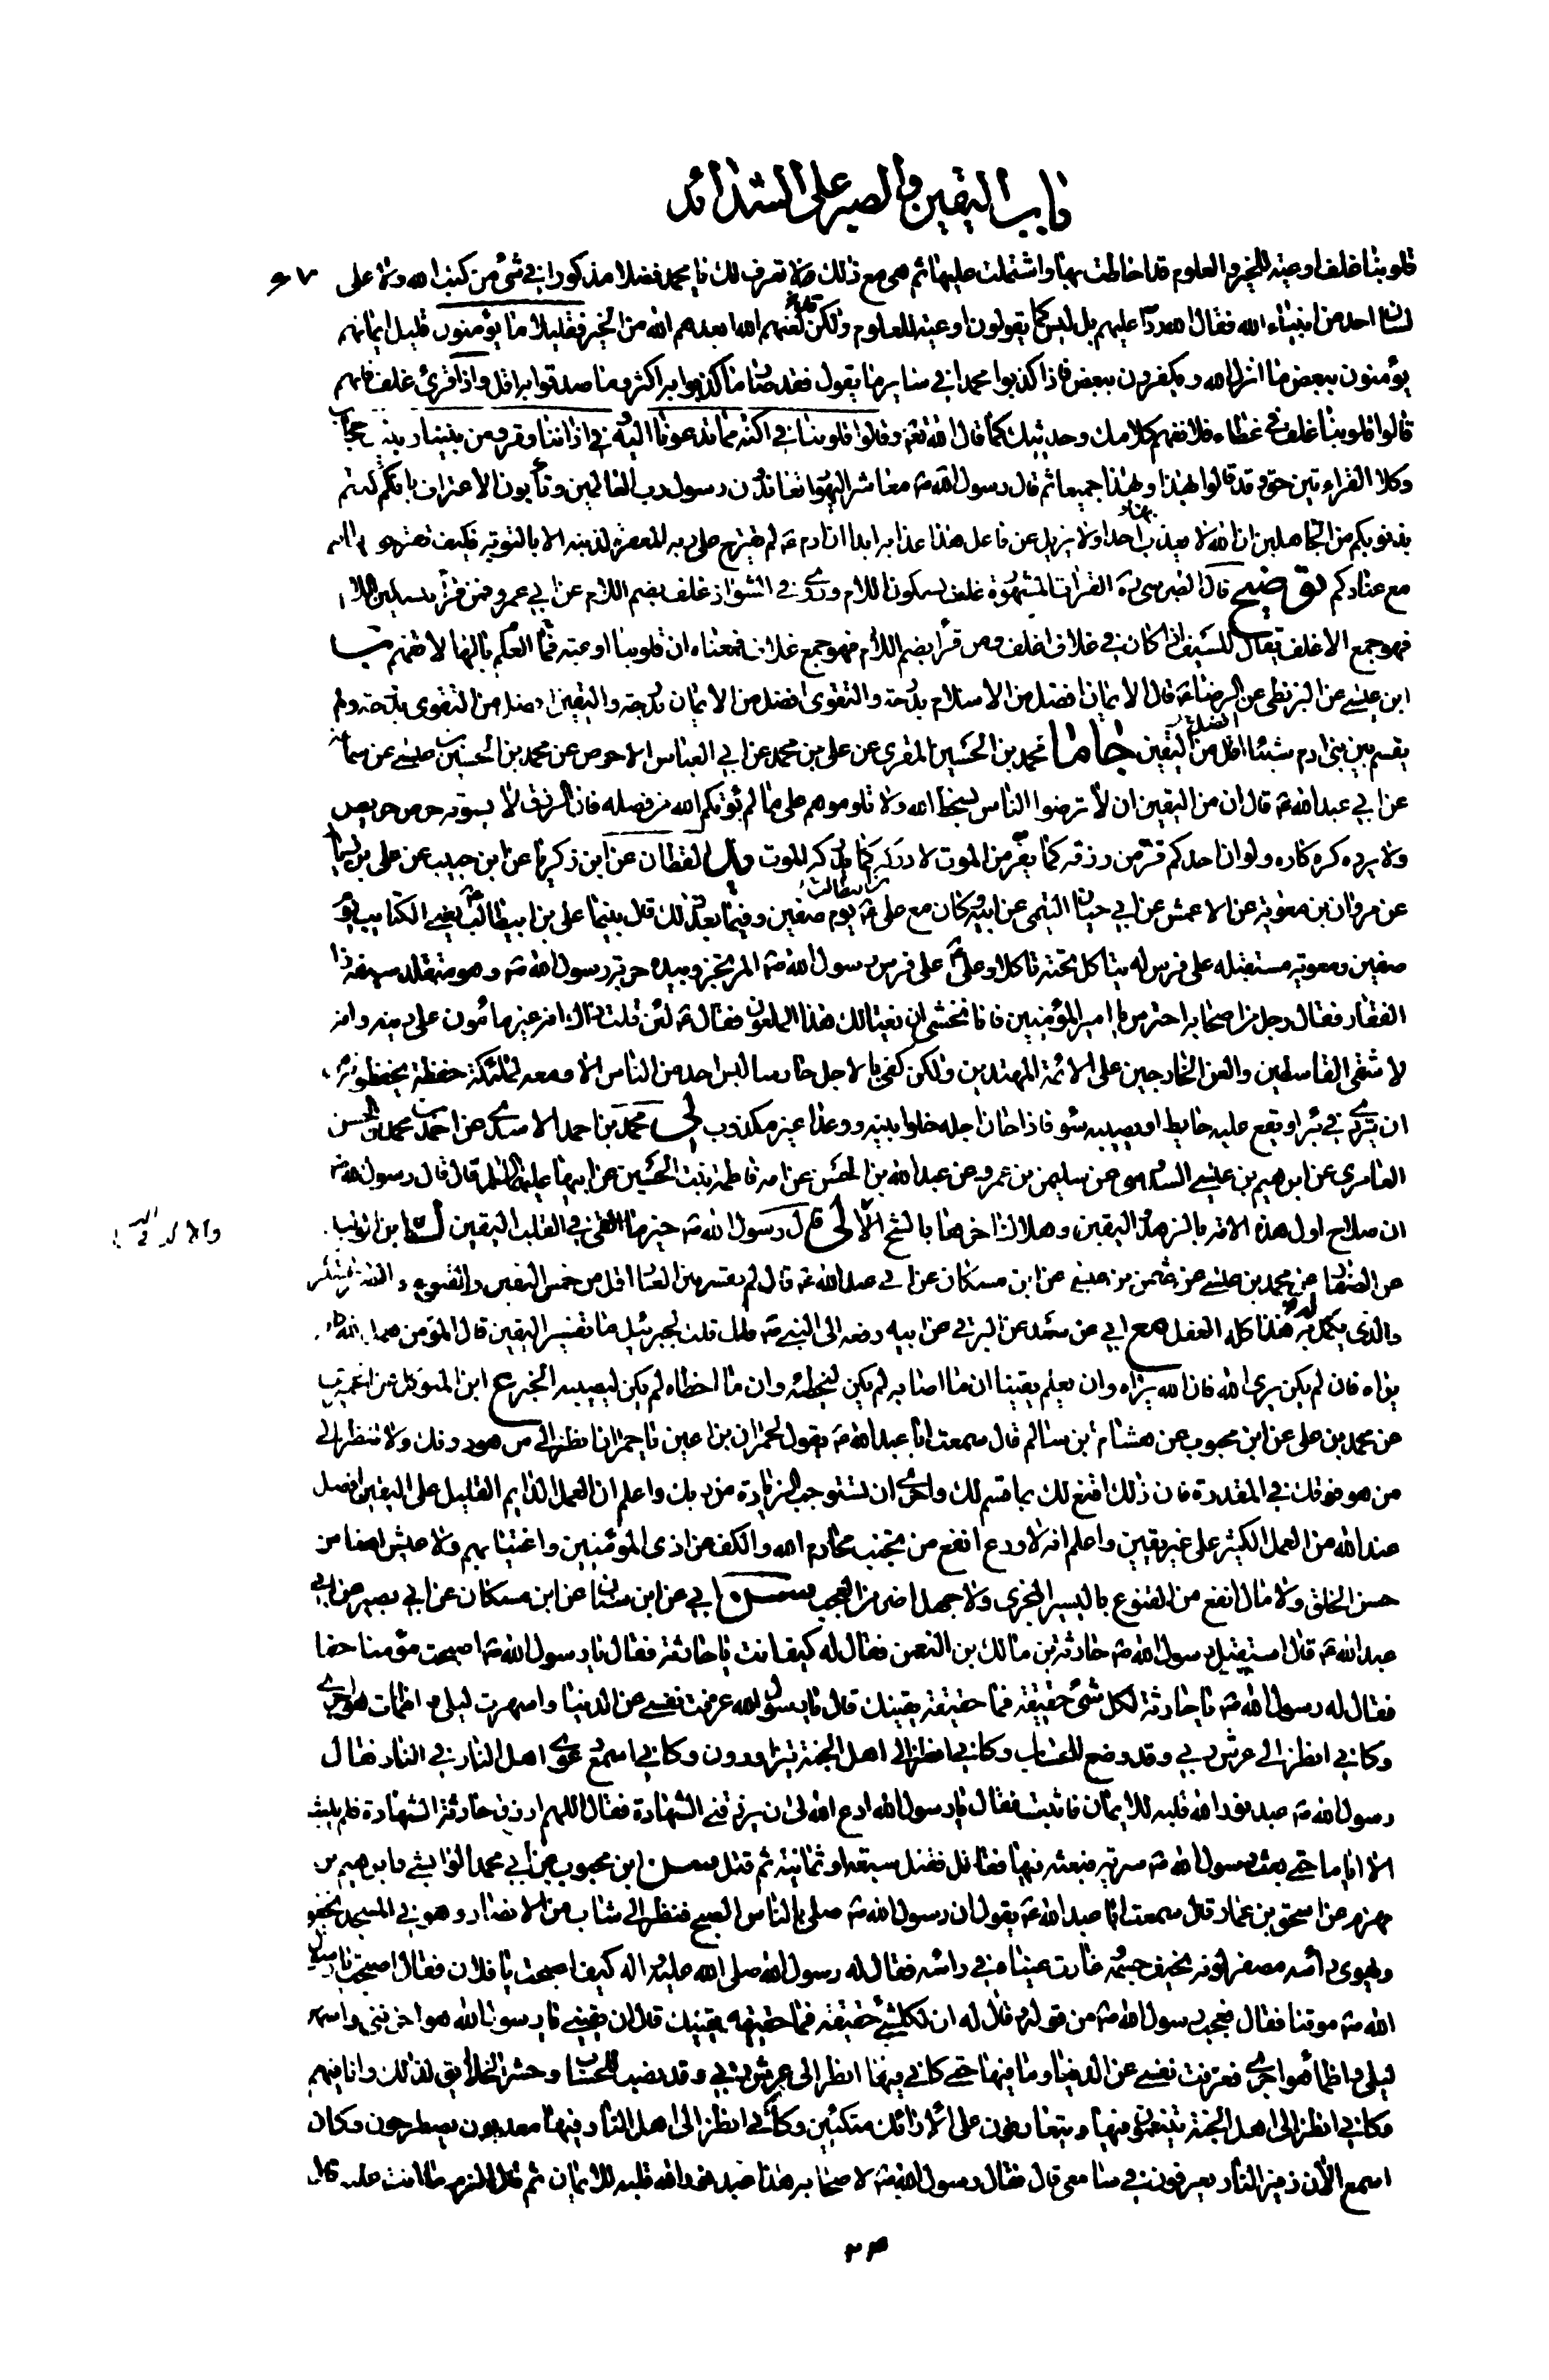 باب اليقين والصبر على الشدائد
قلوبنا غلف اوعية للخير والعلوم قد احاطت بها واشتملت عليها ثم هي مع ذلك لا تعرف لك يا محمد فضلا مذكورا في شئ من كتب الله ولا على
لسان احد من انبياء الله فقال الله ردا عليهم بل ليس كما يقولون اوعية للعلوم ولكن لعنهم الله ابعدهم الله من الخير فقليلا ما يؤمنون قليل ايمانهم
يؤمنون ببعض ما انزل الله ويكفرون ببعض فاذا كذبوا محمدا في ساير ما يقول فقد صار ما كذبوا به اكثر وما صدقوا به اقل واذا قرئ غلف فانهم
قالوا قلوبنا غلف في غطاء فلا نفهم كلامك وحديثك كما قال الله تعالى وقالوا قلوبنا في اكنة مما تدعونا اليه وفي اذاننا وقر ومن بيننا وبينك حجاب
وكلا القراءتين حق وقد قالوا بهذا وبهذا جميعا ثم قال رسول الله ص معاشر اليهود تعاندون رسول رب العالمين وتأبون الاعتراف بانكم كنتم
بذنوبكم من الجاهلين ان الله لا يعذب بها احدا ولا يزيل عن فاعل هذا عذابه ابدا ان ادم ع لم يقترح على ربه المغفرة لذنبه الا بالتوبة فكيف تقترحونها انتم
مع عنادكم توضيح قال الطبرسي ره القراءة المشهورة غلف بسكون اللام وروي في الشواذ غلف بضم اللام عن ابي عمرو فمن قرأ بتسكين اللام
فهو جمع الاغلف يقال للسيف اذا كان في غلاف اغلف ومن قرأ بضم اللام فهو جمع غلاف فمعناه ان قلوبنا اوعية العلم فما بالها لا تفهم ب
ابن عيسى عن البزنطي عن الرضا ع قال الايمان افضل من الاسلام بدرجة والتقوى افضل من الايمان بدرجة واليقين افضل من التقوى بدرجة ولم
يقسم بين بني ادم شيئا اقل من اليقين جا ما محمد بن الحسين المقري عن علي بن محمد عن ابي العباس الاحوص عن محمد بن الحسين بن عيسى عن سماعة
عن ابي عبد الله ع قال ان من اليقين ان لا ترضوا الناس بسخط الله ولا تلوموهم على ما لم يؤتكم الله من فضله فان الرزق لا يسوقه حرص حريص
ولا يرده كره كاره ولو ان احدكم فر من رزقه كما يفر من الموت لادركه كما يدركه الموت القطان عن ابن زكريا عن ابن حبيب عن علي بن زياد
عن مروان بن معوية عن الاعمش عن ابي حيان التيمي عن ابيه وكان مع علي ع يوم صفين وفيما بعد ذلك قال بينما علي بن ابيطالب ع يعبي الكتايب يوم
صفين ومعوية مستقبله على فرس له يتأكل تحته تأكلا وعلي ع على فرس رسول الله ص المرتجز وبيده حربة رسول الله ص وهو متقلد سيفه ذا
الفقار فقال رجل من اصحابه احترس يا امير المؤمنين فانا نخشى ان يغتالك هذا الملعون فقال ع لئن قلت ذاك انه غير مأمون على دينه وانه
لاشقى القاسطين والعن الخارجين على الائمة المهتدين ولكن كفى بالاجل حارسا ليس احد من الناس الا ومعه ملئكة حفظة يحفظونه من
ان يتردى في بئر او يقع عليه حايط او يصيبه سوء فاذا حان اجله خلوا بينه و وعدا غير مكذوب لي محمد بن احمد الاسدي عن احمد بن محمد بن الحسن
العامري عن ابرهيم بن عيسى السدوسي عن سليمن بن عمرو عن عبد الله بن الحسن عن امه فاطمة بنت الحسين عن ابيها عليهما السلم قال قال رسول الله ص
ان صلاح اول هذه الامة بالزهد واليقين وهلاك اخرها بالشح والامل لي قال رسول الله ص خير ما القي في القلب اليقين ابن الوليد
عن الصفار عن محمد بن عيسى عن عثمن بن عيسى عن ابن مسكان عن ابي عبد الله ع قال لم يقسم بين العباد اقل من خمس اليقين والقنوع والصبر والشكر
والذي يكمل به هذا كله العقل مع ابي عن سعد عن البرقي عن ابيه رفعه الى النبي ص قال قلت لجبرئيل ما تفسير اليقين قال المؤمن يعمل لله كانه
يراه فان لم يكن يرى الله فان الله يراه وان يعلم يقينا ان ما اصابه لم يكن ليخطئه وان ما اخطاه لم يكن ليصيبه الخبر ع ابن المتوكل عن الحميري
عن محمد بن علي عن ابن محبوب عن هشام بن سالم قال سمعت ابا عبد الله ع يقول لحمران بن اعين يا حمران انظر الى من هو دونك ولا تنظر الى
من هو فوقك في المقدرة فان ذلك اقنع لك بما قسم لك واحرى ان تستوجب الزيادة من ربك واعلم ان العمل الدايم القليل على اليقين افضل
عند الله من العمل الكثير على غير يقين واعلم انه لا ورع انفع من تجنب محارم الله والكف عن اذى المؤمنين واغتيابهم ولا عيش اهنأ من
حسن الخلق ولا مال انفع من القنوع باليسير المجزي ولا جهل اضر من العجب سن ابي عن ابن سنان عن ابن مسكان عن ابي بصير عن ابي
عبد الله ع قال استقبل رسول الله ص حارثة بن مالك بن النعمن فقال له كيف انت يا حارثة فقال يا رسول الله ص اصبحت مؤمنا حقا
فقال له رسول الله ص يا حارثة لكل شئ حقيقة فما حقيقة يقينك قال يا رسول الله عزفت نفسي عن الدنيا واسهرت ليلي و اظمات هواجري
وكاني انظر الى عرش ربي وقد وضع للحساب وكاني انظر الى اهل الجنة يتزاورون وكاني اسمع عواء اهل النار في النار فقال
رسول الله ص عبد نور الله قلبه للايمان فاثبت فقال يا رسول الله ادع الله لي ان يرزقني الشهادة فقال اللهم ارزق حارثة الشهادة فلم يلبث
الا اياما حتى بعث رسول الله ص سرية فبعثه فيها فقاتل فقتل سبعة او ثمانية ثم قتل سن ابن محبوب عن ابي محمد الوابشي وابرهيم بن
مهزم عن اسحق بن عمار قال سمعت ابا عبد الله ع يقول ان رسول الله ص صلى بالناس الصبح فنظر الى شاب من الانصار وهو في المسجد يخفق
ويهوي براسه مصفر لونه نحيف جسمه غارت عيناه في راسه فقال له رسول الله صلى الله عليه واله كيف اصبحت يا فلان فقال اصبحت يا رسول
الله ص موقنا فقال فعجب رسول الله ص من قوله وقال له ان لكل شئ حقيقة فما حقيقة يقينك قال ان يقيني يا رسول الله هو احزنني واسهر
ليلي واظمأ هواجري فعزفت نفسي عن الدنيا وما فيها حتى كاني انظر الى عرش ربي وقد نصب للحساب وحشر الخلايق لذلك وانا فيهم
وكاني انظر الى اهل الجنة يتنعمون فيها ويتعارفون على الارائك متكئين وكاني انظر الى اهل النار فيها معذبون يصطرخون وكان
اسمع الآن زفير النار يعزفون في مسامعي قال فقال رسول الله ص لاصحابه هذا عبد نور الله قلبه للايمان ثم قال الزم ما انت عليه قال